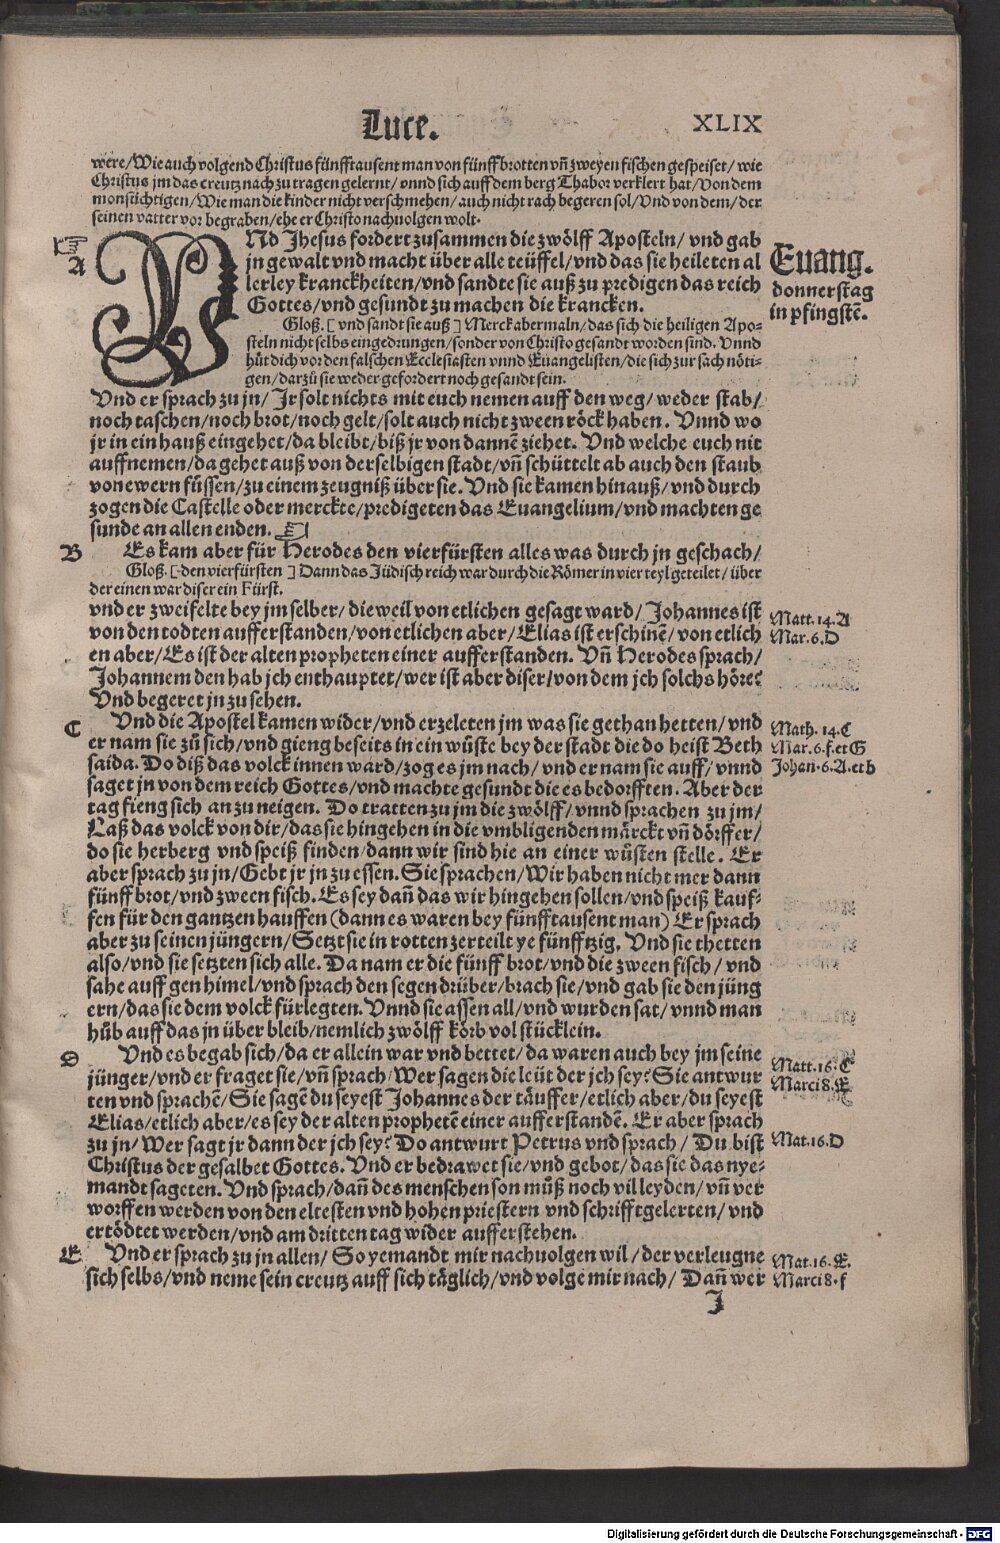 Luce. XLIX
were/Wie auch volgend Christus fünfftausent man von fünff brotten vñ zweyen fischen gespeiset/wie
Christus jm das creutz nach zu tragen gelernt/vnnd sich auff dem berg Thabor verklert hat/Von dem
monsüchtigen/Wie man die kinder nicht verschmehen/auch nicht rach begeren sol/Vnd von dem/der
seinen vatter vor begraben/ehe er Christo nachuolgen wolt.
A
VNd Jhesus fordert zusammen die zwölff Aposteln/vnd gab
jn gewalt vnd macht über alle teüffel/vnd das sie heileten al
lerley kranckheiten/vnd sandte sie auß zu predigen das reich
Gottes/vnd gesundt zu machen die krancken.
Euang.
donnerstag
in pfingstē.
Gloß. [vnd sandt sie auß] Merck abermaln/das sich die heiligen Apo-
steln nicht selbs eingedrungen/sonder von Christo gesandt worden sind. Vnnd
hüt dich vor den falschen Ecclesiasten vnnd Euangelisten/die sich zur sach nöti-
gen/darzü sie weder gefordert noch gesandt sein.
Vnd er sprach zu jn/Jr solt nichts mit euch nemen auff den weg/weder stab/
noch taschen/noch brot/noch gelt/solt auch nicht zween röck haben. Vnnd wo
jr in ein hauß eingehet/da bleibt/biß jr von dannē ziehet. Vnd welche euch nit
auffnemen/da gehet auß von derselbigen stadt/vñ schüttelt ab auch den staub
von ewern füssen/zu einem zeugniß über sie. Vnd sie kamen hinauß/vnd durch
zogen die Castelle oder merckte/predigeten das Euangelium/vnd machten ge
sunde an allen enden.
B
Es kam aber für Herodes den vierfürsten alles was durch jn geschach/
Gloß. [den vierfürsten] Dann das Jüdisch reich war durch die Römer in vier teyl geteilet/über
der einen war diser ein Fürst.
vnd er zweifelte bey jm selber/die weil von etlichen gesagt ward/Johannes ist
von den todten aufferstanden/von etlichen aber/Elias ist erschinē/von etlich
en aber/Es ist der alten propheten einer aufferstanden. Vñ Herodes sprach/
Johannem den hab jch enthauptet/wer ist aber diser/von dem jch solchs höre?
Vnd begeret jn zu sehen.
Matt. 14. A
Mar. 6. D
C
Vnd die Apostel kamen wider/vnd erzeleten jm was sie gethan hetten/vnd
er nam sie zü sich/vnd gieng beseits in ein wüste bey der stadt die do heist Beth
saida. Do diß das volck innen ward/zog es jm nach/vnd er nam sie auff/vnnd
saget jn von dem reich Gottes/vnd machte gesundt die es bedorfften. Aber der
tag fieng sich an zu neigen. Do tratten zu jm die zwölff/vnnd sprachen zu jm/
Laß das volck von dir/das sie hingehen in die vmbligenden märckt vñ dörffer/
do sie herberg vnd speiß finden/dann wir sind hie an einer wüsten stelle. Er
aber sprach zu jn/Gebt jr jn zu essen. Sie sprachen/Wir haben nicht mer dann
fünff brot/vnd zween fisch. Es sey dañ das wir hingehen sollen/vnd speiß kauf-
fen für den gantzen hauffen (dann es waren bey fünfftausent man) Er sprach
aber zu seinen jüngern/Setzt sie in rotten zerteilt ye fünfftzig. Vnd sie thetten
also/vnd sie setzten sich alle. Da nam er die fünff brot/vnd die zween fisch/vnd
sahe auff gen himel/vnd sprach den segen drüber/brach sie/vnd gab sie den jüng
ern/das sie dem volck fürlegten. Vnnd sie assen all/vnd wurden sat/vnnd man
hüb auff das jn über bleib/nemlich zwölff körb vol stücklein.
Math. 14. C
Mar. 6. f. et G
Johan. 6. A. et b
D
Vnd es begab sich/da er allein war vnd bettet/da waren auch bey jm seine
jünger/vnd er fraget sie/vñ sprach/Wer sagen die leüt der jch sey? Sie antwur
ten vnd sprachē/Sie sagē du seyest Johannes der täuffer/etlich aber/du seyest
Elias/etlich aber/es sey der alten prophetē einer aufferstandē. Er aber sprach
zu jn/Wer sagt jr dann der jch sey? Do antwurt Petrus vnd sprach/Du bist
Christus der gesalbet Gottes. Vnd er bedrawet sie/vnd gebot/das sie das nye-
mandt sageten. Vnd sprach/dañ des menschen son müß noch vil leyden/vñ ver
worffen werden von den eltesten vnd hohen priestern vnd schrifftgelerten/vnd
ertödtet werden/vnd am dritten tag wider aufferstehen.
Matt. 16. C
Marci 8. E
Mat. 16. D
E
Vnd er sprach zu jn allen/So yemandt mir nachuolgen wil/der verleugne
sich selbs/vnd neme sein creutz auff sich täglich/vnd volge mir nach/Dañ wer
Mat. 16. E.
Marci 8. f
J
Digitalisierung gefördert durch die Deutsche Forschungsgemeinschaft - DFG